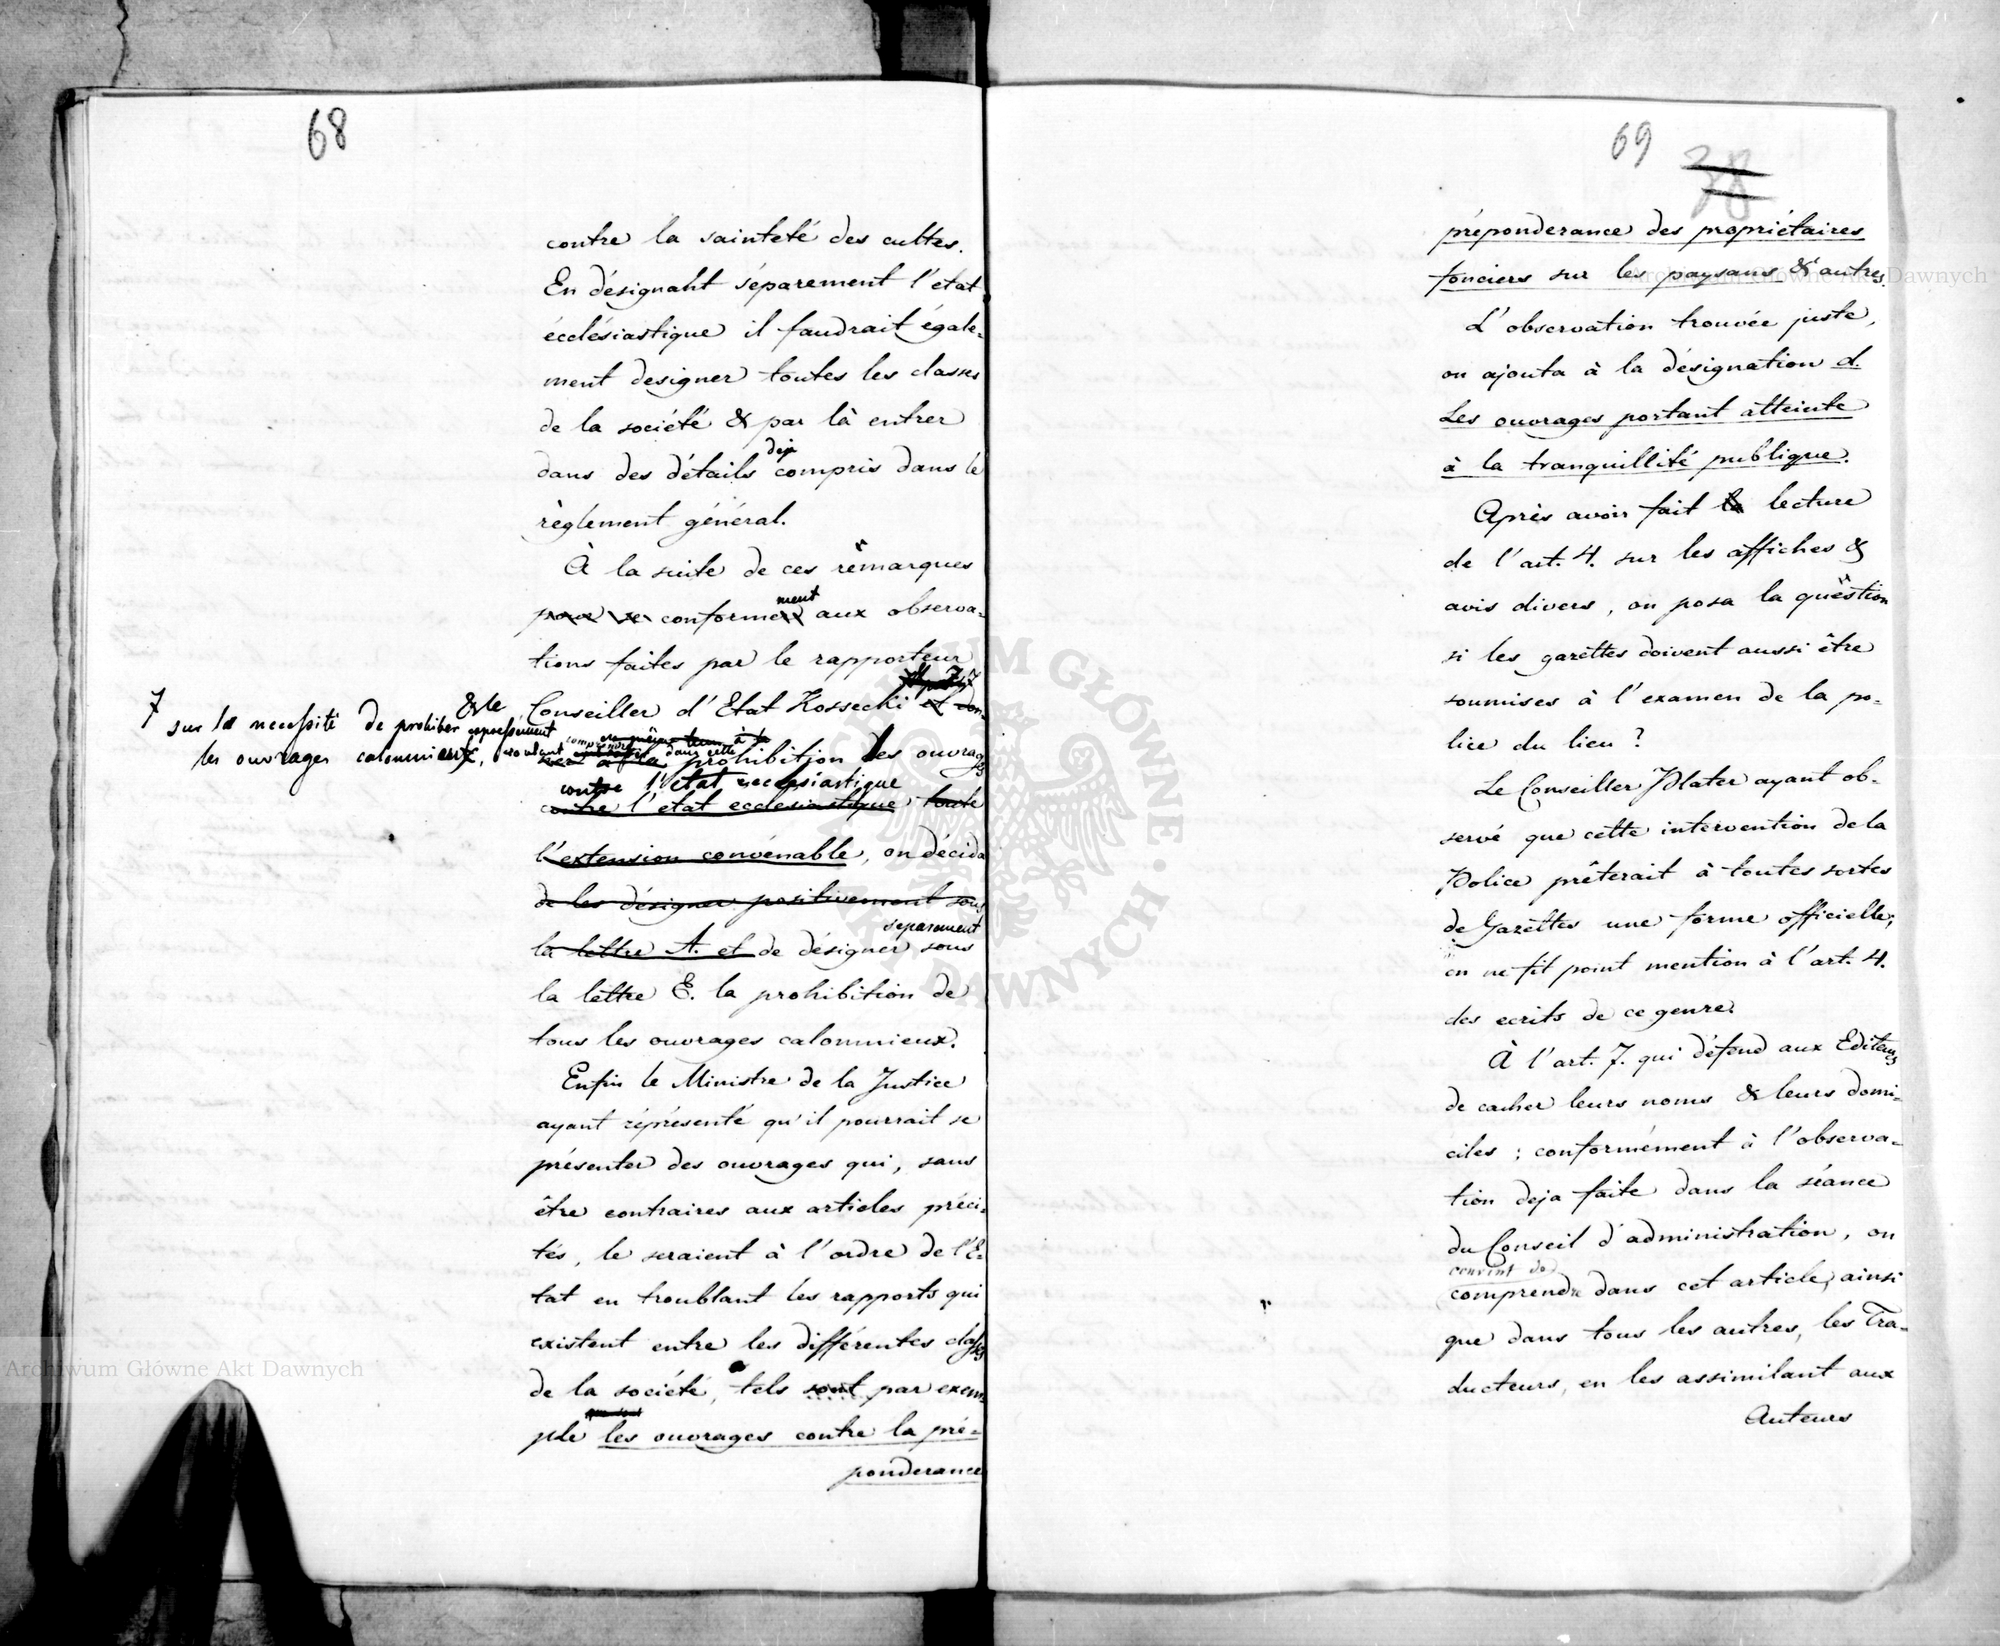 68
contre la sainteté des cultes.
En désignant séparement l'etat
écclésiastique il faudrait égale-
ment designer toutes les classes
de la société & par là entrer
deja
dans des détails compris dans le
règlement général.
À la suite de ces remarques
ment
pour se conforme aux observa-
tions faites par le rapporteur
& le Conseiller d'Etat Kossecki et don-
7 sur la necessité de prohiber expressément
les ouvrages calomnieux, voulant
comprendre dans cette
ner à la prohibition des ouvrages
contre l'etat ecclesiastique
contre l'etat ecclesiastique toute
l'extension convénable, on décida
de les désigner positivement sous
separement
la lettre A. et de désigner sous
la lettre E. la prohibition de
tous les ouvrages calomnieux.
Enfin le Ministre de la Justice
ayant réprésenté qu'il pourrait se
présenter des ouvrages qui, sans
être contraires aux articles préci-
tés, le seraient à l'ordre de l'E-
tat en troublant les rapports qui
existent entre les différentes classes
de la société, tels sont par exem-
que sont
ple les ouvrages contre la pré-
ponderance
69
38
préponderance des propriétaires
fonciers sur les paysans & autres.
L'observation trouvée juste,
on ajouta à la désignation d.
Les ouvrages portant atteinte
à la tranquillité publique.
Après avoir fait la lecture
de l'art. 4. sur les affiches &
avis divers, on posa la question
si les gazettes doivent aussi être
soumises à l'examen de la po-
lice du lieu ?
Le Conseiller Plater ayant ob-
servé que cette intervention de la
Police prêterait à toutes sortes
de Gazettes une forme officielle;
on ne fit point mention à l'art. 4.
des ecrits de ce genre.
À l'art. 7. qui défend aux Editeurs
de cacher leurs noms & leurs domi-
ciles ; conformément à l'observa-
tion deja faite dans la séance
du Conseil d'administration, on
convint de
comprendre dans cet article, ainsi
que dans tous les autres, les Tra-
ducteurs, en les assimilant aux
Auteurs
ARCHIWUM GŁÓWNE AKT DAWNYCH
Archiwum Główne Akt Dawnych
Archiwum Główne Akt Dawnych